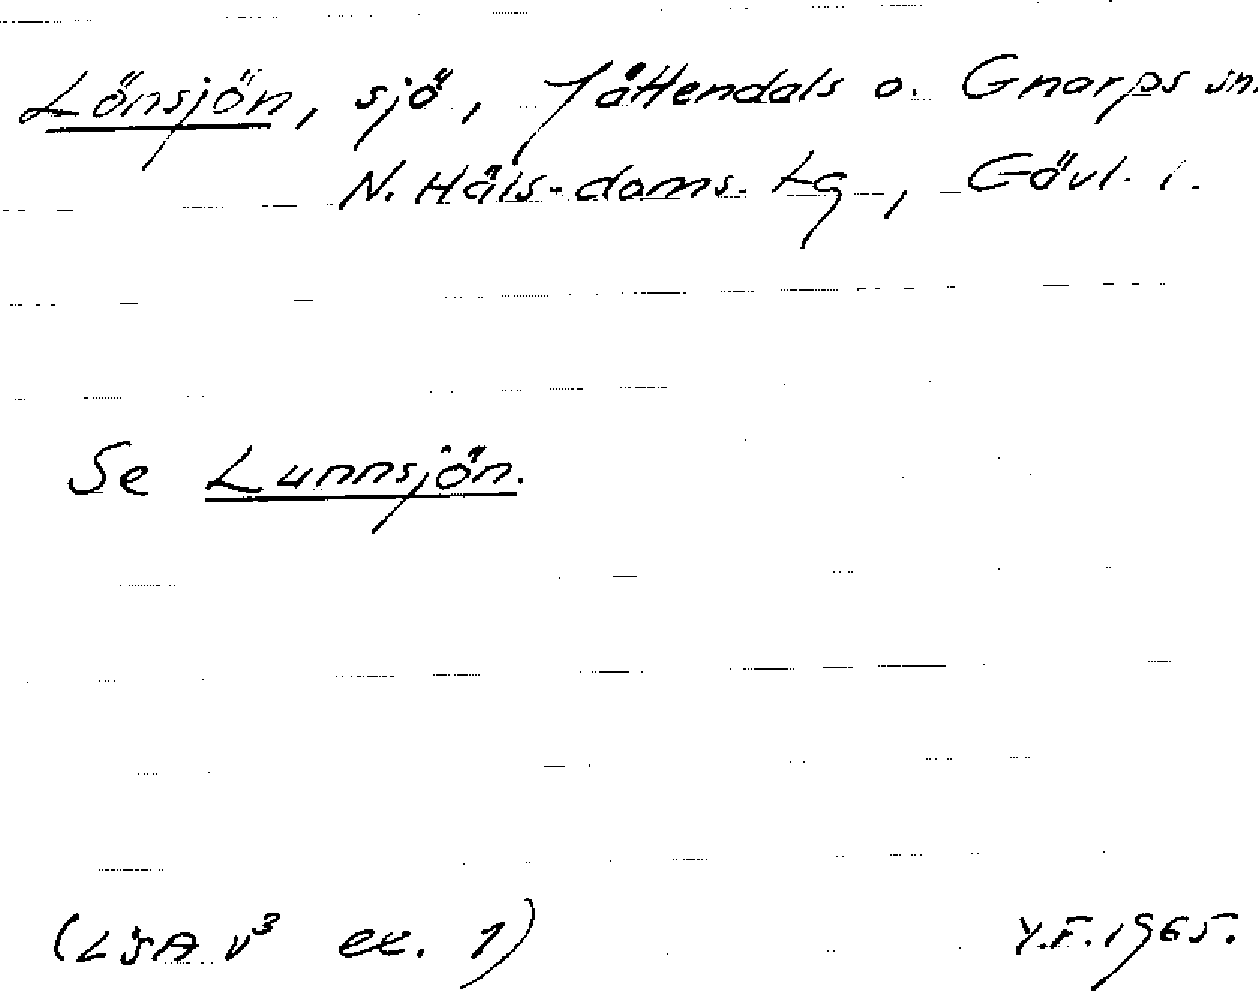 Lönsjön, sjö, Jättendals o. Gnarps sn.
N. Häls. doms. tg, Gävl. l.
Se Lunnsjön.
(LSA v³ ex. 1) Y.F. 1965.